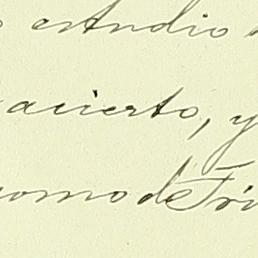 estudio
acierto, y
como de Tri